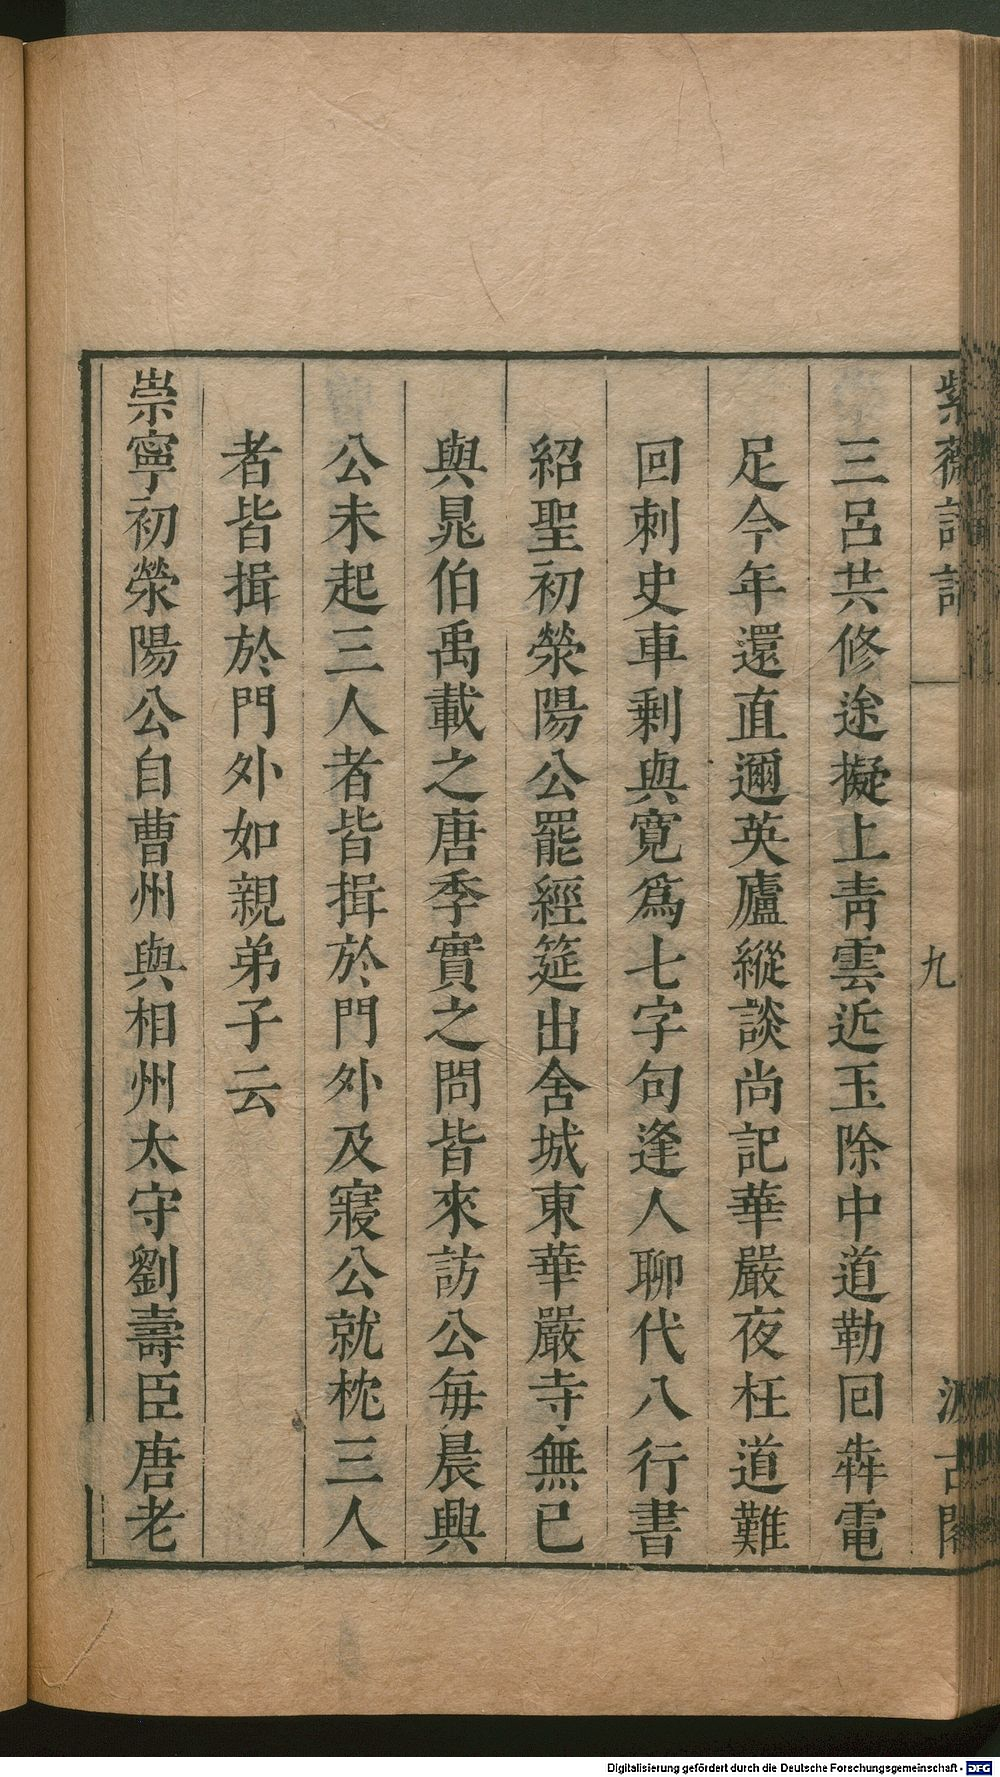 紫薇詩話
九
汲古閣
三呂共修途擬上青雲近玉除中道勒回犇電
足今年還直邇英廬縱談尚記華嚴夜枉道難
回刺史車剩與寬爲七字句逢人聊代八行書
紹聖初滎陽公罷經筵出舍城東華嚴寺無已
與晁伯禹載之唐季實之問皆來訪公每晨興
公未起三人者皆揖於門外及寢公就枕三人
者皆揖於門外如親弟子云
崇寧初滎陽公自曹州與相州太守劉壽臣唐老
Digitalisierung gefördert durch die Deutsche Forschungsgemeinschaft - DFG